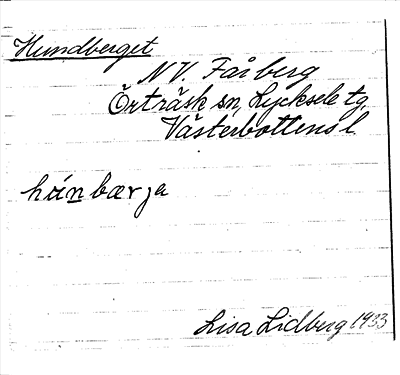 Hundberget
NV. Fårberg
Örträsk sn, Lycksele tg.
Västerbottens l
húnbærja
Lisa Lidberg 1933